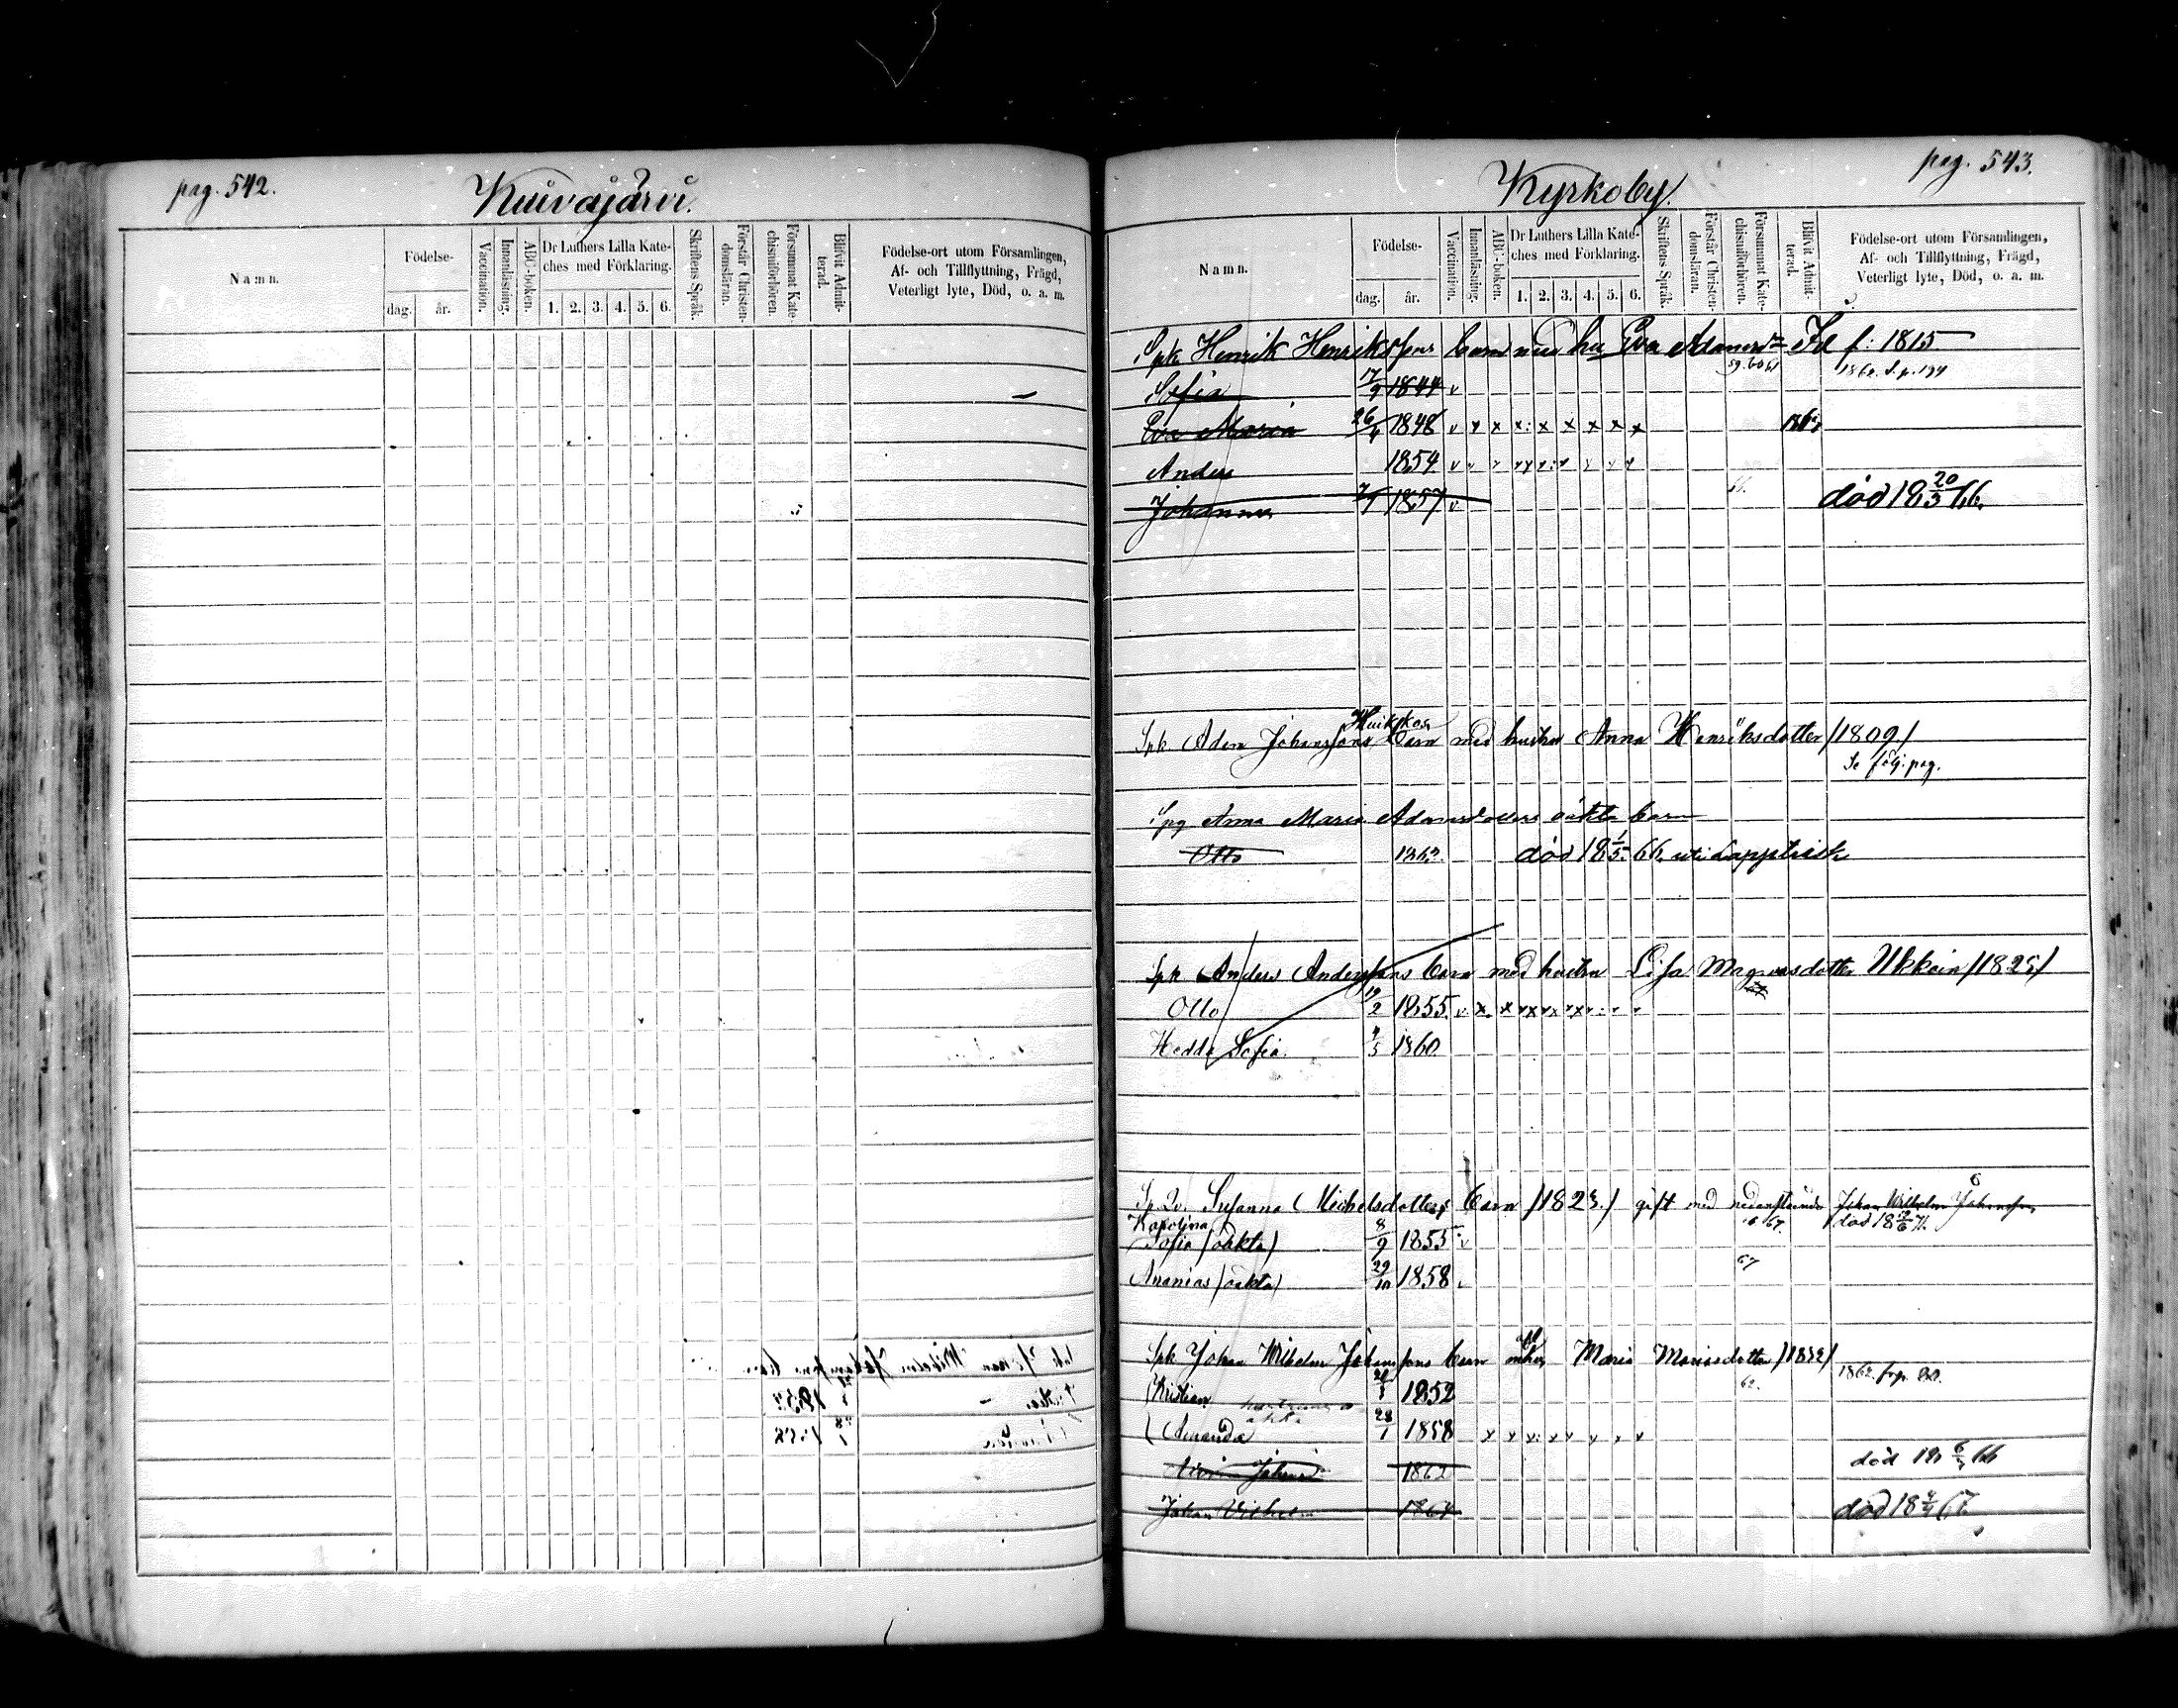 pag. 542.
Kuivajärvi.
Namn.
Födelse-
dag.
år.
Vaccination.
Innanläsning.
ABC-boken.
Dr Luthers Lilla Kate-
ches med Förklaring.
1. 2. 3. 4. 5. 6.
Skriftens Språk.
Förstår Christen-
domsläran.
Försummat Kate-
chismiförhören.
Blifvit Admit-
terad.
Födelse-ort utom Församlingen,
Af- och Tillflyttning, Frägd,
Veterligt lyte, Död, o. a. m.
pag. 543.
Kyrkoby.
Namn.
Födelse-
dag.
år.
Vaccination.
Innanläsning.
ABC-boken.
Dr Luthers Lilla Kate-
ches med Förklaring.
1. 2. 3. 4. 5. 6.
Skriftens Språk.
Förstår Christen-
domsläran.
Försummat Kate-
chismiförhören.
Blifvit Admit-
terad.
Födelse-ort utom Församlingen,
Af- och Tillflyttning, Frägd,
Veterligt lyte, Död, o. a. m.
Spk Henrik Henrikssons barn med hu Eva Adamsd:r f: 1815
59.60 61
Sofia 17/9 1844 v
Eva Maria 26/4 1848 v x x x: x x x x x
Anders 1854 v v
Johannes 1857 v död 18 20/3 66.
Spk Adam Johanssons barn med hustru Anna Henriksdotter /1809/
Se följ: pag.
Spg Anna Maria Adamsdotters oäkta barn
Otto död 18 1/5 66
Spk Anders Anderssons barn med hustru Lisa Magnusdotter Ukkoin /1825/
Otto 19/2 1855. v
Hedda Sofia. 1860.
Susanna Michelsdotters barn /1823./ gift med nedanstående Johan Wilhelm Johansson
Karolina
Sofia /oäkta/ 8/9 1855 v
67
Ananias /oäkta/ 29/10 1858
Spk Johan Wilhelm Johanssons barn Maria Mariasdotter
62.
Kristian 1852
Amanda 28/1 1858 x x x: x v
1862 död 18 66
Johan Vilhelm 1864 död 18 67.